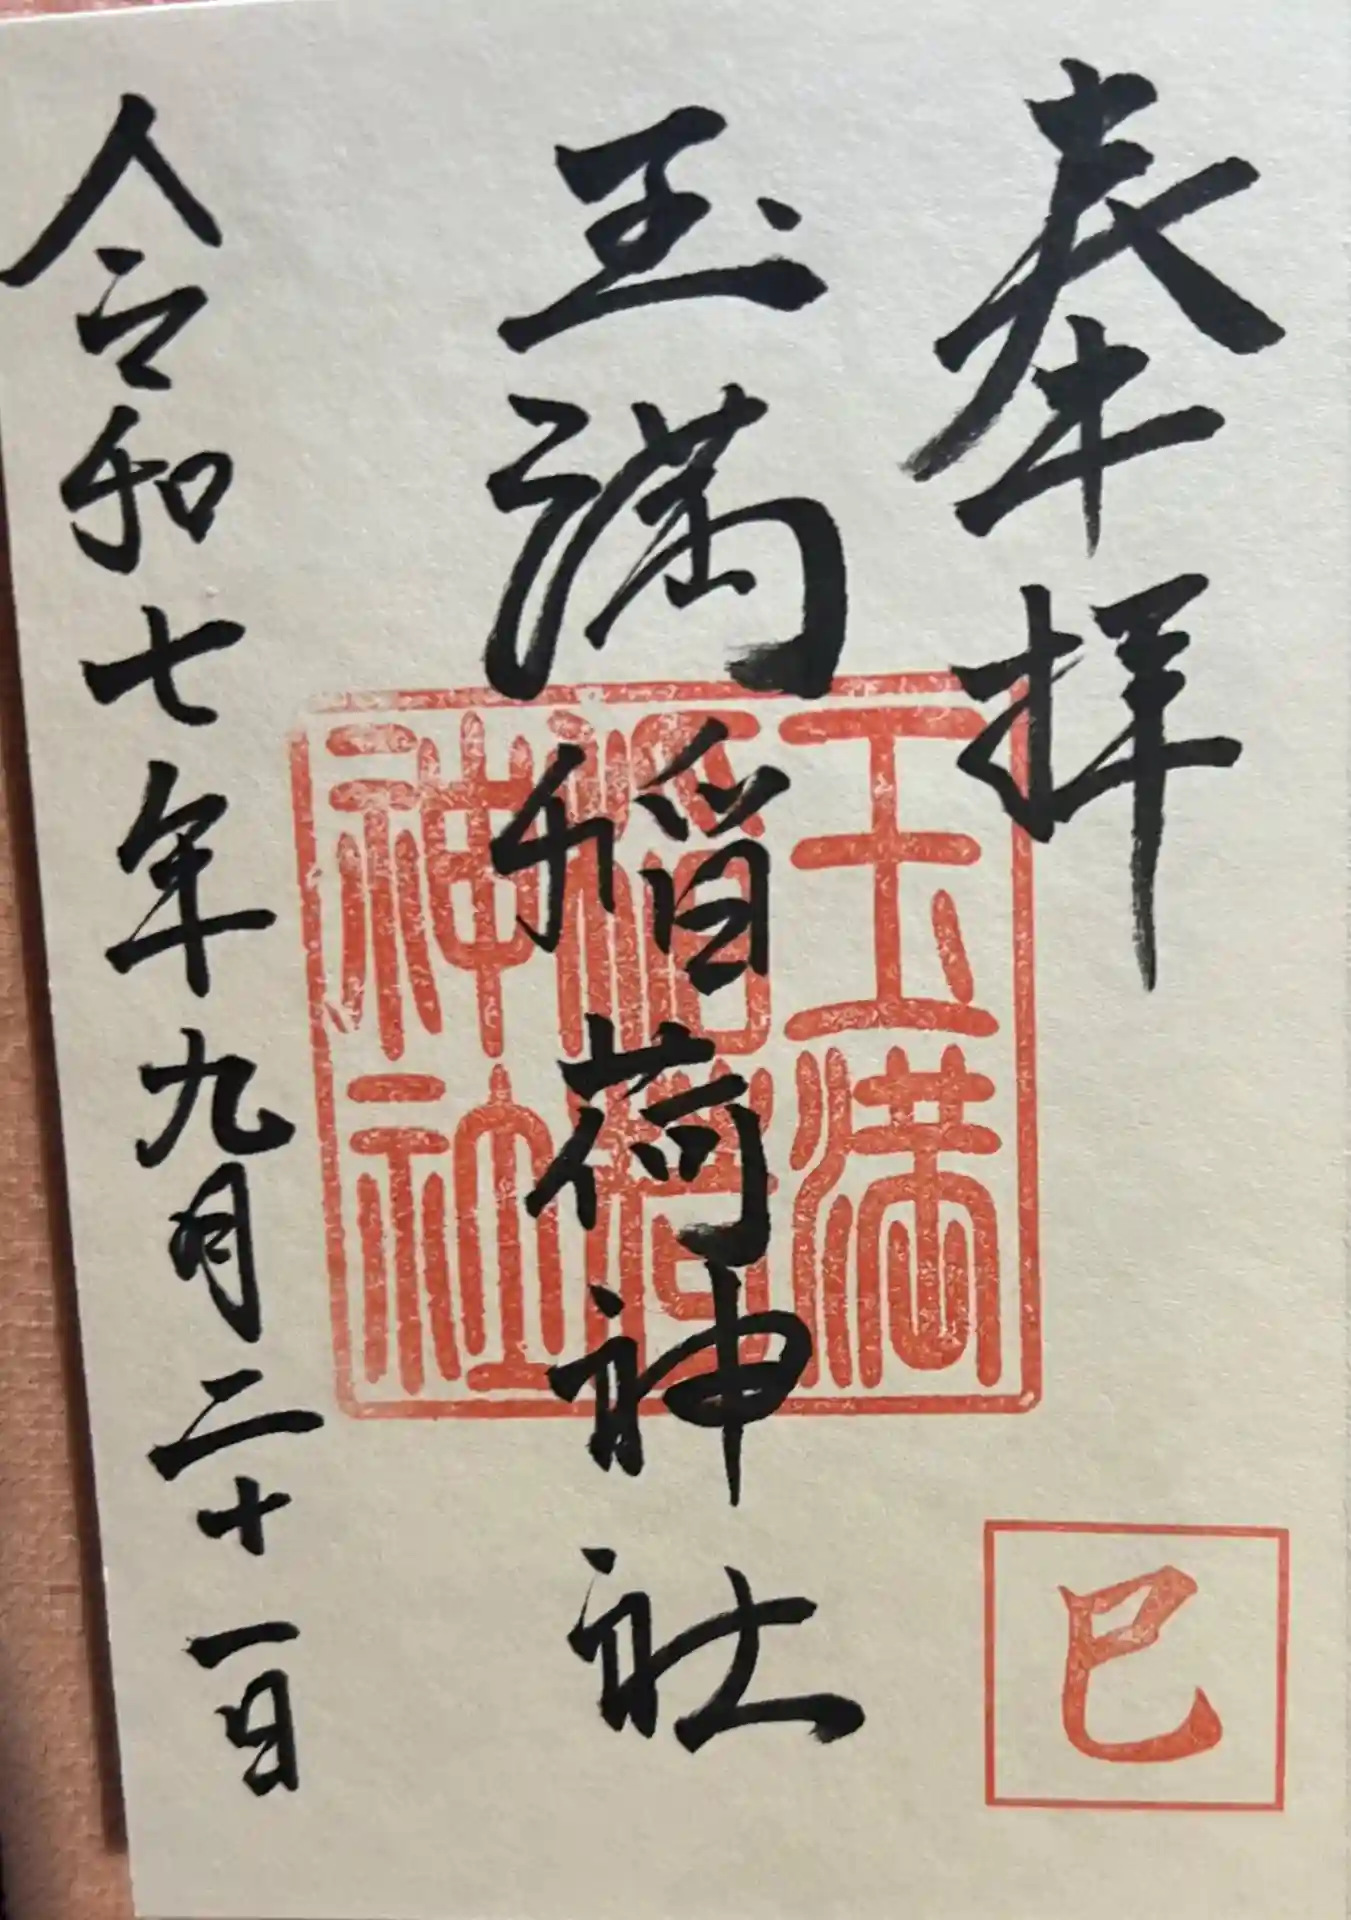 奉拝
巳
玉満稲荷神社
玉満
稲荷
神社
令和七年九月二十一日